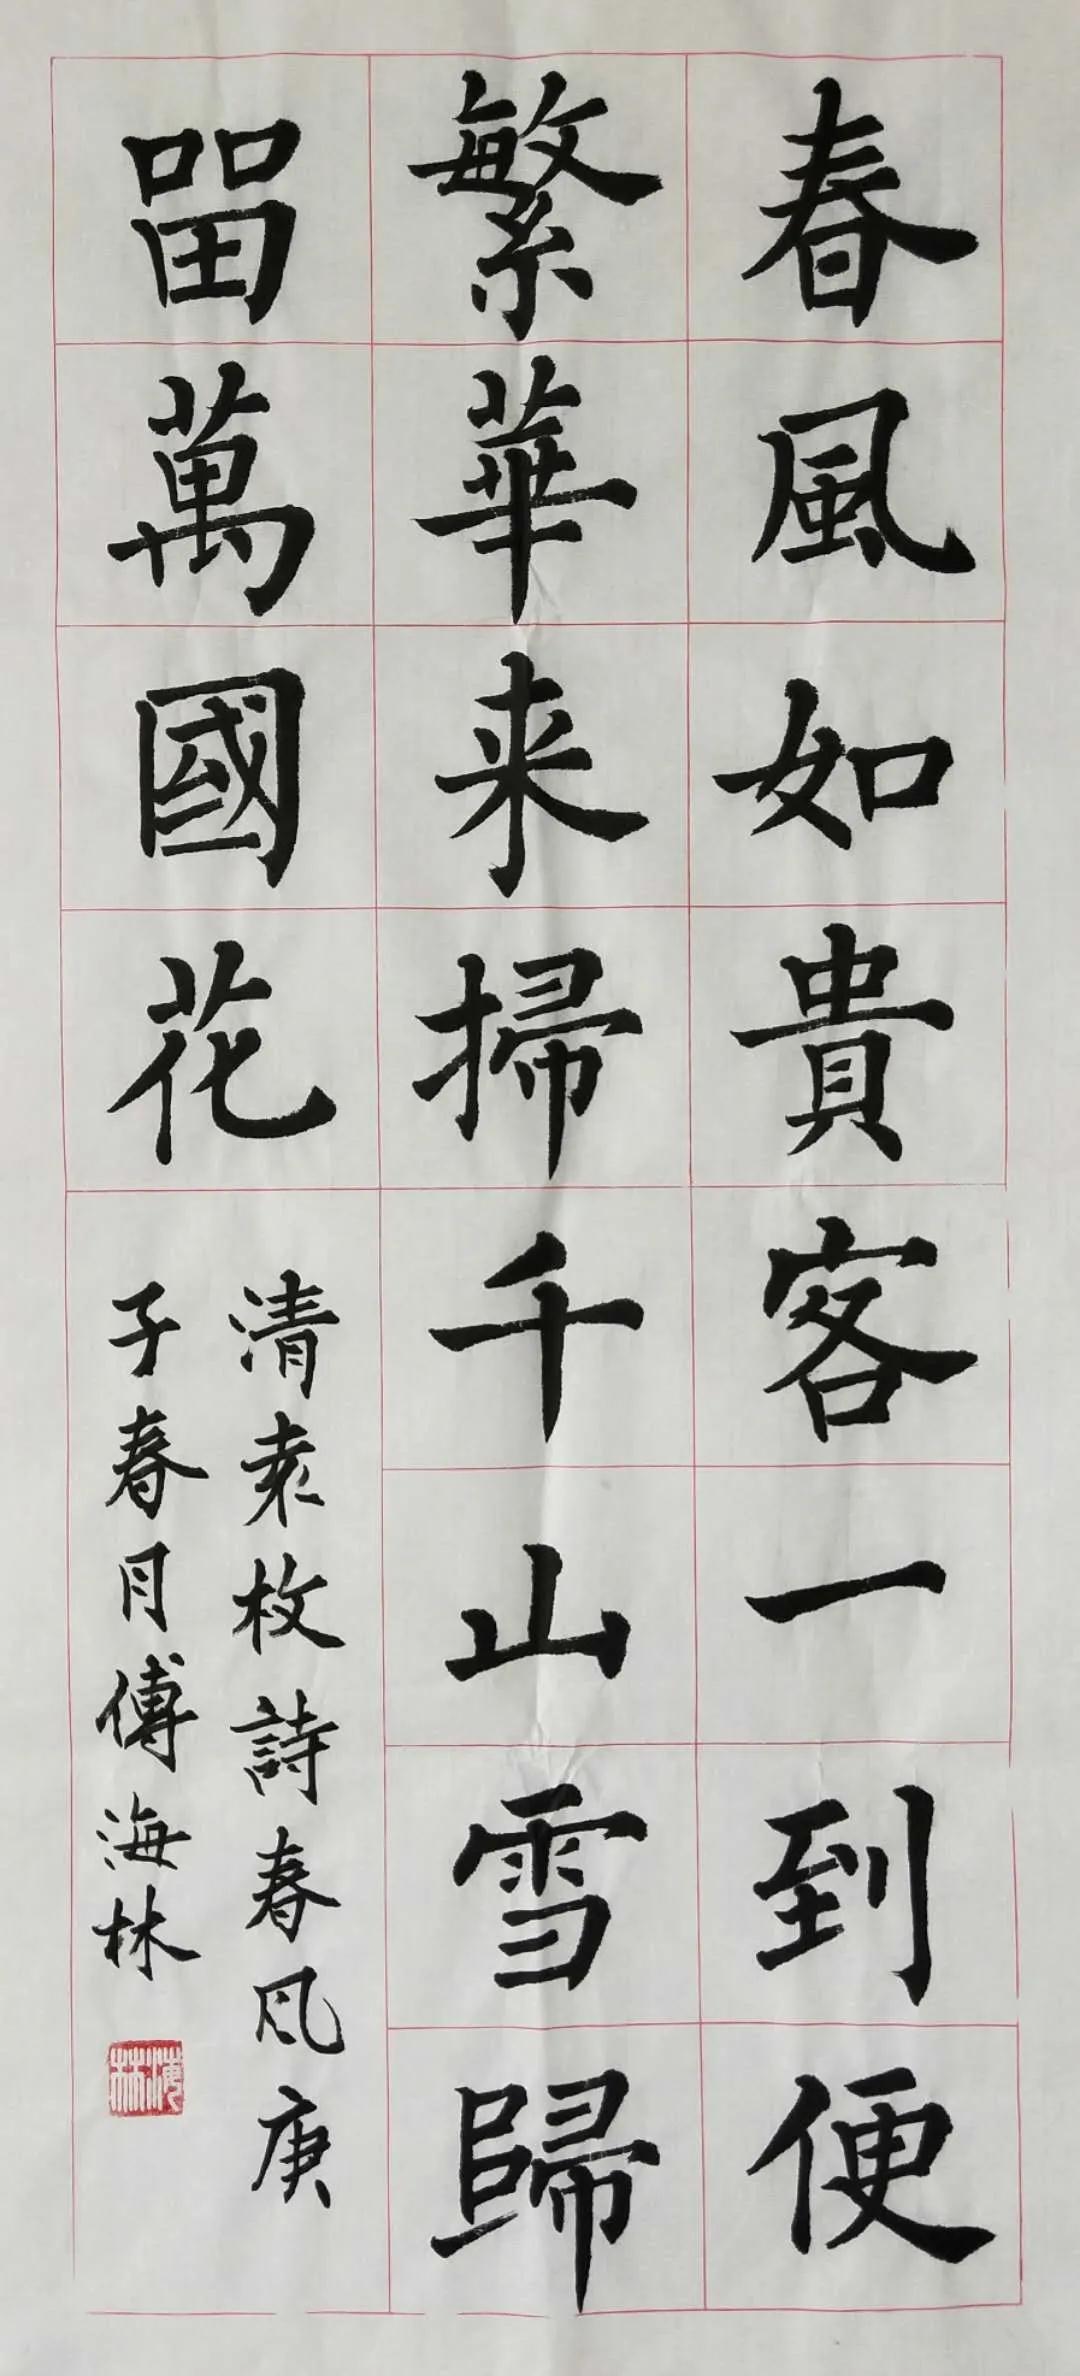 春風如貴客一到便
繁華来掃千山雪歸
畱萬國花
清袁枚詩春风庚
子春月傅海林
海林